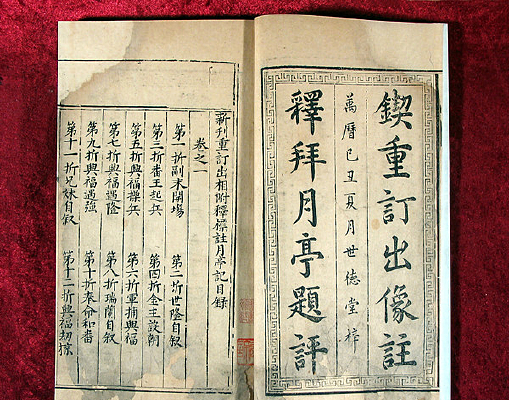 鍥重訂出像註
萬曆己丑夏月世德堂梓
釋拜月亭題評
新刊重訂出相附釋標註月亭記目錄
卷之一
第一折副末開場 第二折世隆自叙
第三折番王起兵 第四折金主設朝
第五折興福操兵 第六折軍捕興福
第七折興福遇隆 第八折瑞蘭自叙
第九折興福遇強 第十折奉命和番
第十一折兄妹自叙 第十二折興福劫掠